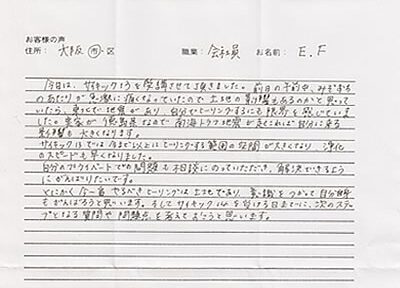 お客様の声
住所： 大阪 市・区 職業： 会社員 お名前： E.F
今日は、サイキック13を受講させて頂きました。前日の午前中、みぞおち
のあたりが急激に痛くなっていたので土地の影響もあるのかと思って
いたら、東北で地震があり、自分でヒーリングするにも限界を感じていま
した。実家が徳島県なので南海トラフ地震が起これば自分に来る
影響も大きくなります。
サイキック13では今まで以上にヒーリングする範囲の空間が大きくなり、浄化
のスピードも早くなりました。
自分のプライベートでの問題も相談にのっていただき、解決できるよう
にがんばりたいです。
とにかく今一番やるべきヒーリングは土地であり、意識をつかって自分自身
もがんばろうと思います。そしてサイキック14を受ける日までに、次のステッ
プとなる質問や問題点を考えておこうと思います。